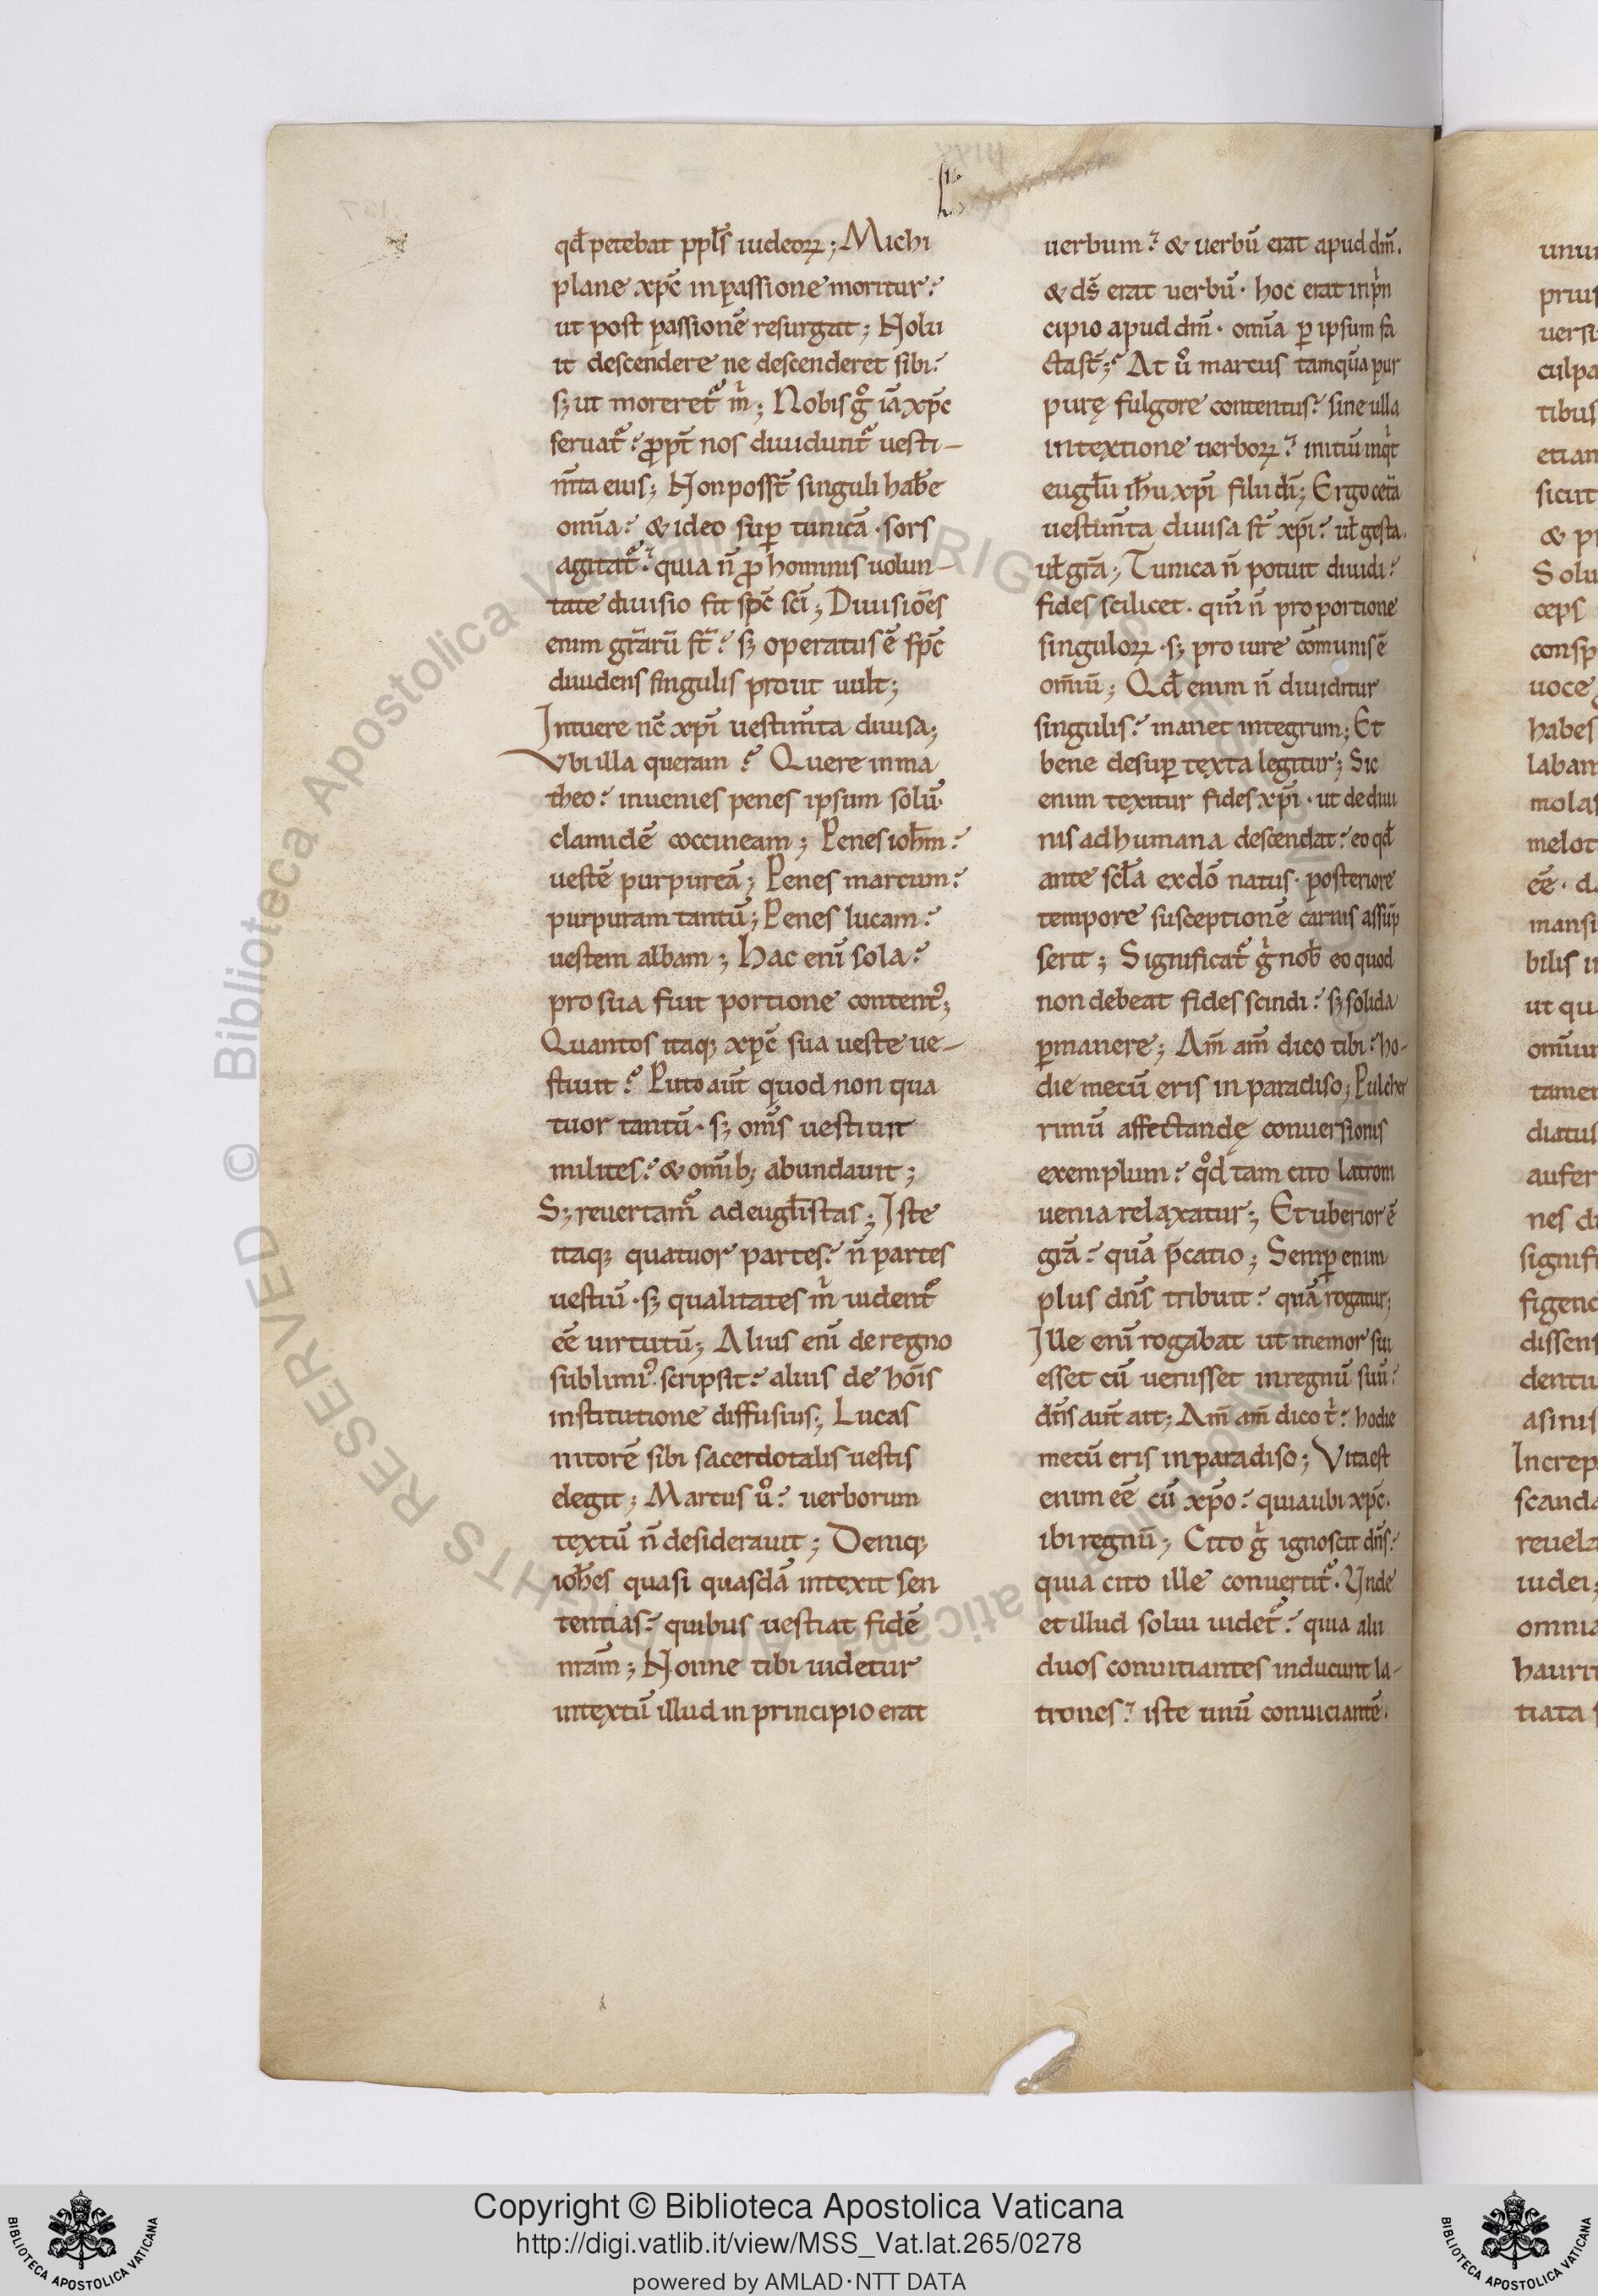 qd̄ petebat ppl̄s iudeoꝝ; Michi
plane xp̄c in passione moritur?
ut post passionē resurgat; Nolu
it descendere ne descenderet sibi?
sꝫ ut moreret᷑ m̄; Nobis gͦ iā xp̄c
seruat᷑? ꝓpt̄ nos diuidunt᷑ uesti-
m̄ta eius; Non poss̄t singuli hab̄e
om̄ia? & ideo suꝑ tunicā · sors
agitat᷑? quia n̄ ꝓ hominis uolun-
tate diuisio fit sp̄c sc̄i; Diuisiōes
enim gr̄arū st̄? sꝫ operatus ē sp̄c
diuidens singulis prout uult;
Intuere nc̄ xp̄i uestim̄ta diuisa;
Vbi illa queram? Quere in ma
theo? inuenies penes ipsum solū·
clamidē coccineam; Penes ioh̄m?
uestē purpureā; Penes marcum?
purpuram tantū; Penes lucam?
uestem albam; Hac eni᷑ sola?
pro sua fuit portione content᷒;
Quantos itaqꝫ xp̄c sua ueste ue-
stiuit? Puto aut̄ quod non qua
tuor tantū · sꝫ om̄s uestiunt
milites? & om̄ibꝫ abundauit;
Sꝫ reuertam᷑ ad eugl̄istas; Iste
itaqꝫ quatuor partes? n̄ partes
uestiū · sꝫ qualitates m̄ uident᷑
eē uirtutū; Alius eni᷑ de regno
sublimi᷒ scripsit? alius de hoīs
institutione diffusius; Lucas
nitorē sibi sacerdotalis uestis
elegit; Marcus uͦ? uerborum
textū n̄ desiderauit; Deniqꝫ
ioh̄es quasi quasdā intexit sen
tentias? quibus uestiat fidē
nr̄am; Nonne tibi uidetur
intextū illud in principio erat
uerbum? & uerbū erat apud dm̄.
& ds̄ erat uerbū · hoc erat in pͥn
cipio apud dm̄ · om̄ia ꝑ ipsum fa
cta st̄; At uͦ marcus tamquā pur
purę fulgore contentus? sine ulla
intextione uerboꝝ? initiū inqͥt
eugl̄iū ih̄u xp̄i filii dī; Ergo cet̄a
uestim̄ta diuisa st̄ xp̄i? ul̄ gesta.
ul̄ gr̄a; Tunica n̄ potuit diuidi?
fides scilicet · qm̄ n̄ pro portione
singuloꝝ · sꝫ pro iure cōmunis ē
om̄iū; Qd̄ enim n̄ diuiditur
singulis? manet integrum; Et
bene desuꝑ texta legitur; Sic
enim texitur fides xp̄i · ut de diui
nis ad humana descendat? eo qd̄
ante scl̄a ex dō natus · posteriore
tempore susceptionē carnis assūp
serit; Significat᷑ gͥ nob̄ eo quod
non debeat fides scindi? sꝫ solida
ꝑmanere; Am̄ am̄ dico tibi? ho-
die mecū eris in paradiso; Pulcher
rimū affectandę conuersionis
exemplum? qͦd tam cito latroni
uenia relaxatur; Et uberior ē
gr̄a? quā p̄catio; Semꝑ enim
plus dn̄s tribuit? quā rogatur;
Ille eni᷑ rogabat ut memor sui
esset cū uenisset in regnū suū?
dn̄s aut̄ ait; Am̄ am̄ dico tͥ? hodie
mecū eris in paradiso; Vita est
enim eē cū xp̄o? quia ubi xp̄c.
ibi regnū; Cito gͥ ignoscit dn̄s?
quia cito ille conuertit᷑. Vnde
et illud solui uidet᷑? quia alii
duos conuitiantes inducunt la-
trones? iste unū conuiciantē.
Copyright © Biblioteca Apostolica Vaticana
http://digi.vatlib.it/view/MSS_Vat.lat.265/0278
powered by AMLAD·NTT DATA